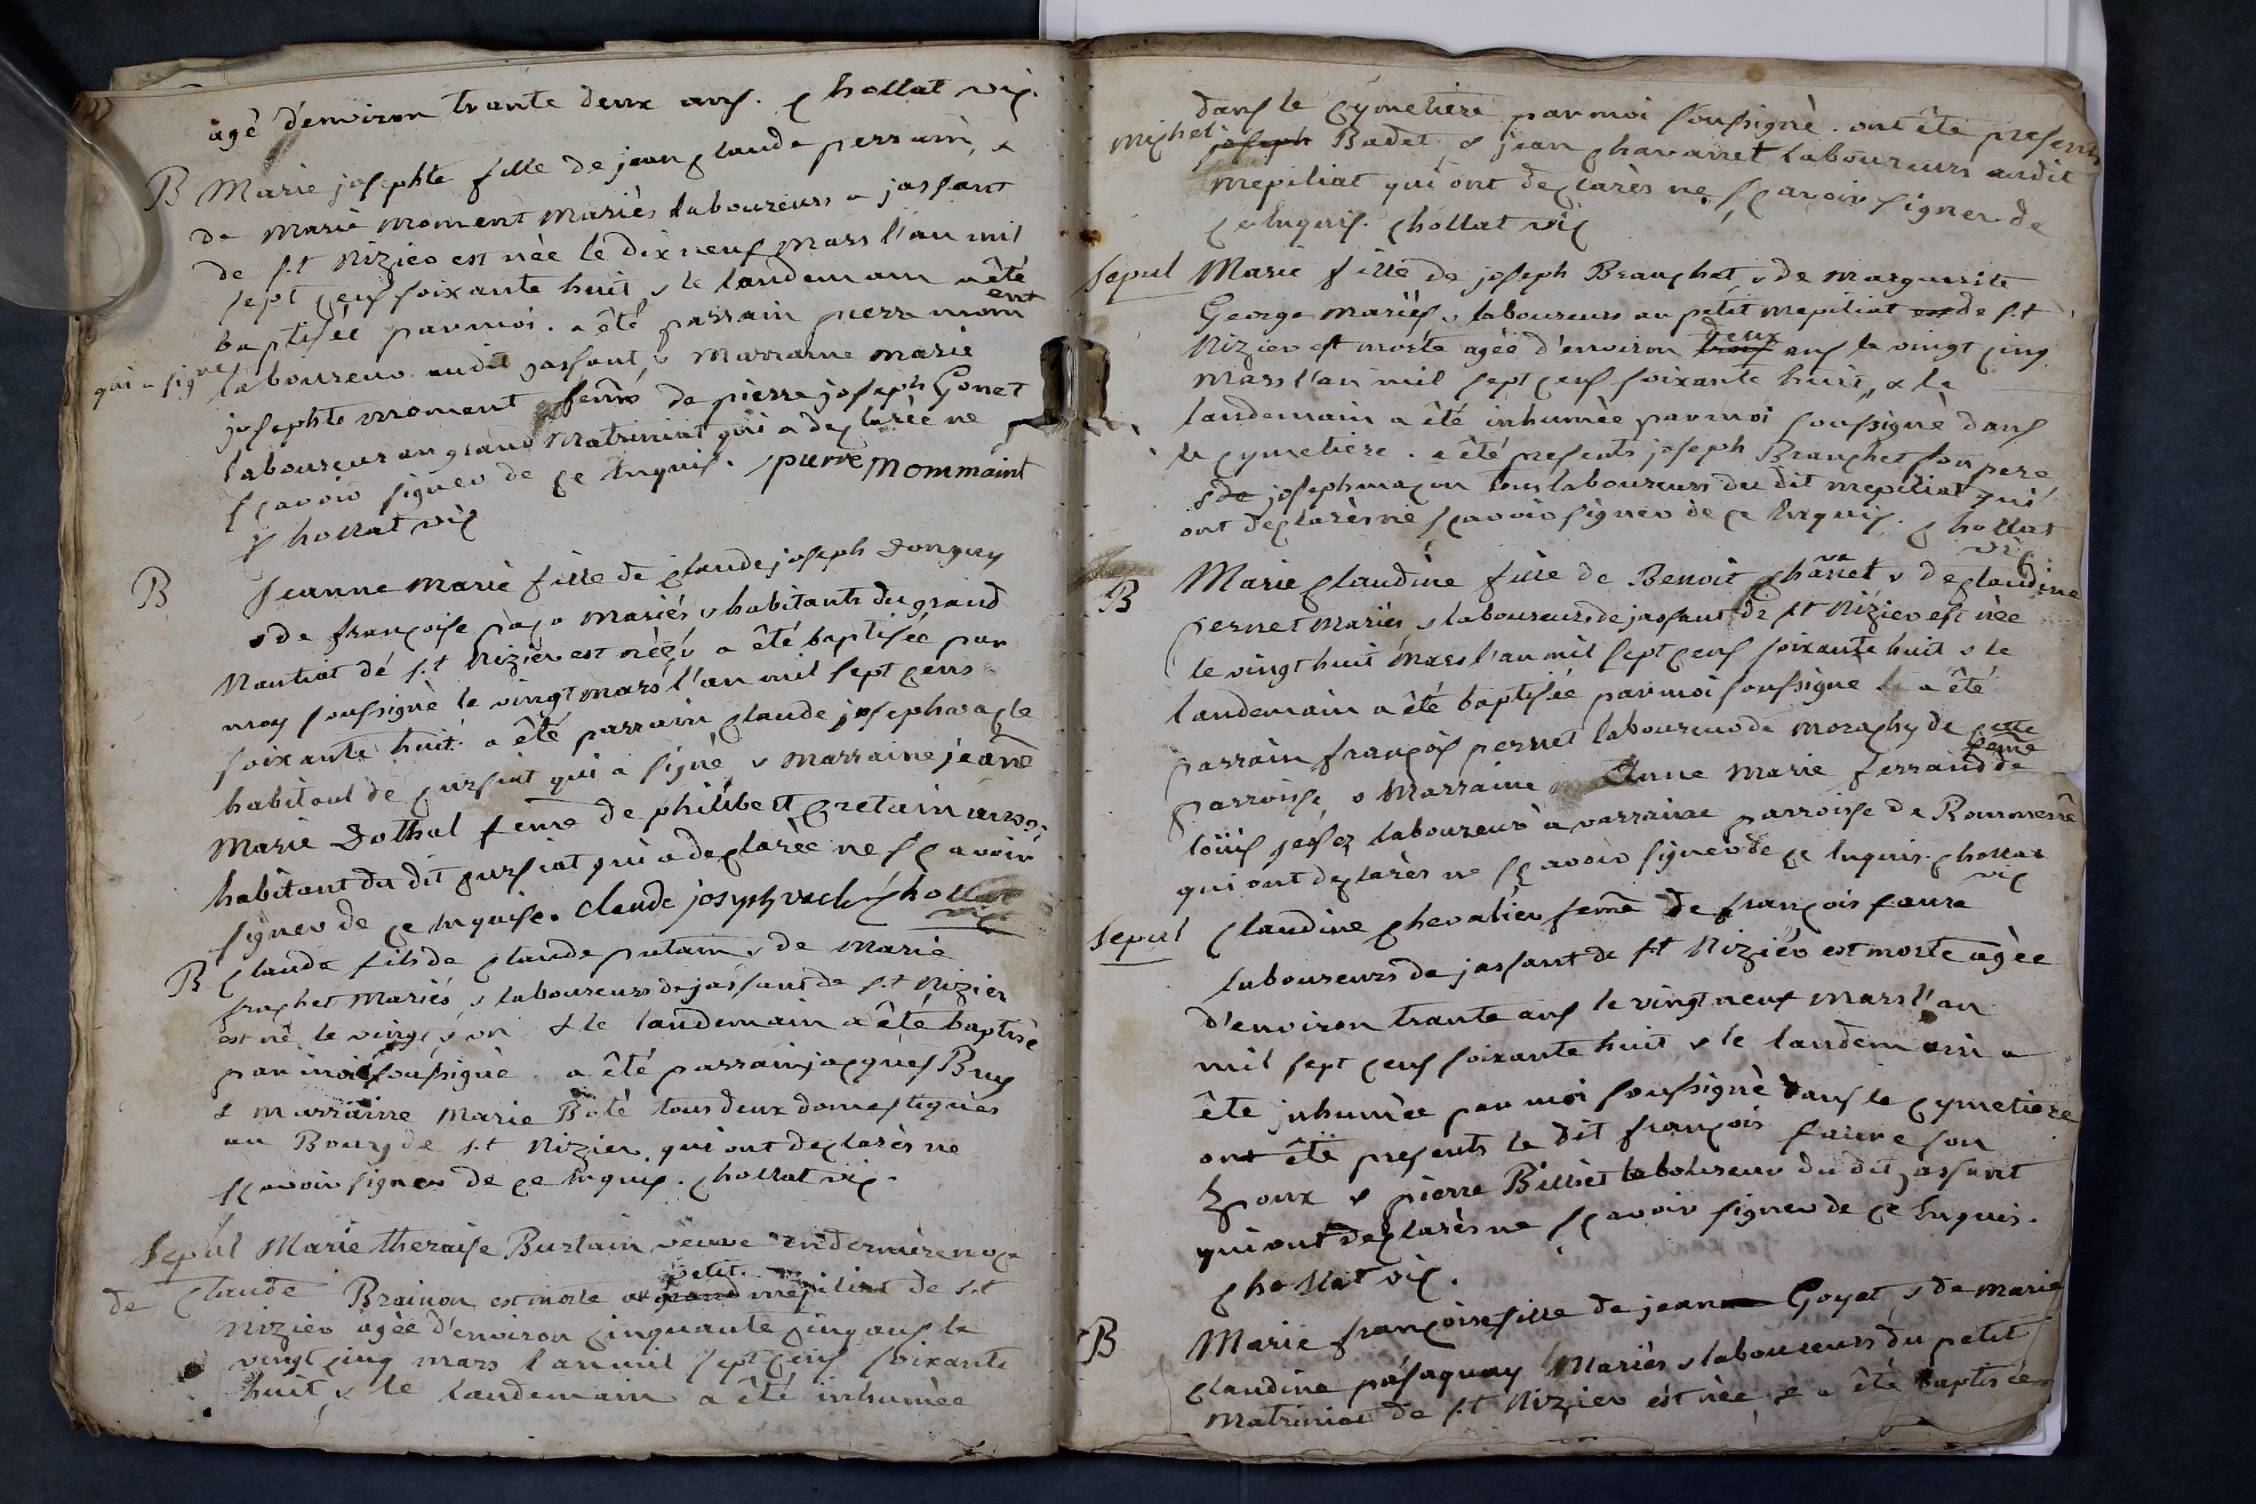 agé d'environ trante deux ans. chollat vic.
B Marie josephte fille de jean claude perrain, &
de marie moment mariés laboureurs a jassant
de s.t Nizier est née le dix neuf mars l'an mil
sept cens soixante huit & le landemain a été
baptisée par moi. a été parrain pierre moment
qui a signé laboureur audit jassant, & marraine marie
josephte moment feme de pierre joseph Gonet
laboureur au grand Matriniat qui a declarée ne
sçavoir signer de ce Enquis. pierre Mommaint
chollat vic
B Jeanne Marie fille de claude joseph
& de françoise mariés & habitants du grand
de s.t Nizier est née & a été baptisée par
moy soussigné le vingt mars l'an mil sept cens
soixante huit. a été parrain claude joseph vacle
habitant de cursiat qui a signé & marraine jeane
Marie Dothal feme de philibert cretain aussi
habitant du dit cursiat qui a declarée ne sçavoir
signer de ce enquise. claude josyph vacle chollat
vic
B claude fils de claude putain & de marie
frachet Mariés & laboureurs de jassant de s.t Nizier
est né le vingt & un & le landemain a été baptisé
par moi soussigné. a été parrain jacques Bruy
& marraine Marie Boté tous deux domestiques
au Bourg de s.t Nizier qui ont declarés ne
sçavoir signer de ce enquis. chollat vic.
Sepul Marie theraise Burtain veuve en derniere noce
de claude Brainon est morte au grand petit mepiliat de s.t
Nizier agée d'environ cinquante cinq ans le
vingt cinq mars l'an mil sept cens soixante
huit, & le landemain a été inhumée
dans le cymetiere par moi soussigné. ont été presents
michel joseph Badet, & jean chavanet laboureurs audit
mepiliat qui ont declarés ne sçavoir signer de
ce Enquis. chollat vic
Sepul Marie fille de joseph Brauchet, & de marguerite
George mariés, & laboureurs au petit mepiliat de s.t
Nizier est morte agée d'environ trois deux ans le vingt cinq
mars l'an mil sept cens soixante huit, & le
landemain a été inhumée par moi soussigné dans
le cymetiere. a été presents joseph Brauchet son pere
& de joseph maçon tous laboureurs du dit mepiliat qui
ont declarés ne sçavoir signer de ce Enquis. chollat
vic
B Marie claudine fille de Benoit chavanet & de claudine
pernet mariés & laboureurs de jassant de s.t Nizier est née
le vingt huit mars l'an mil sept cens soixante huit & le
landemain a été baptisée par moi soussigné a été
parrain françois pernet laboureur de morachy de cette
parroisse, & Marraine Anne Marie ferrand feme de
loüis laboureur a varraine parroisse de
qui ont declarés ne sçavoir signer de ce Enquis. chollat
vic
Sepul claudine chevalier feme de françois faure
laboureurs de jassant de s.t Nizier est morte agée
d'environ trante ans le vingt neuf mars l'an
mil sept cens soixante huit & le landemain a
été inhumée par moi soussigné dans le cymetiere
ont été presents le dit françois faure son
Epoux & pierre Billiet laboureur du dit jassant
qui ont declarés ne sçavoir signer de ce Enquis.
chollat vic.
B Marie françoise fille de jean Goyat & de marie
claudine pásaquay Mariés & laboureurs du petit
matriniat de s.t Nizier est née & a été baptisée